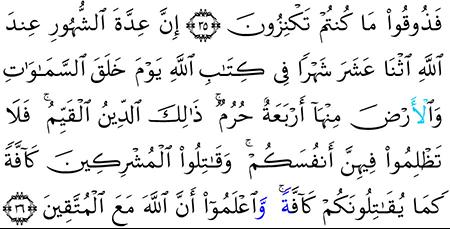 فَذُوقُوا۟ مَا كُنتُمْ تَكْنِزُونَ ٣٥ إِنَّ عِدَّةَ ٱلشُّهُورِ عِندَ
ٱللَّهِ ٱثْنَا عَشَرَ شَهْرًا فِى كِتَـٰبِ ٱللَّهِ يَوْمَ خَلَقَ ٱلسَّمَـٰوَٰتِ
وَٱلْأَرْضَ مِنْهَآ أَرْبَعَةٌ حُرُمٌ ۚ ذَٰلِكَ ٱلدِّينُ ٱلْقَيِّمُ ۚ فَلَا
تَظْلِمُوا۟ فِيهِنَّ أَنفُسَكُمْ ۚ وَقَـٰتِلُوا۟ ٱلْمُشْرِكِينَ كَآفَّةً
كَمَا يُقَـٰتِلُونَكُمْ كَآفَّةً ۚ وَٱعْلَمُوٓا۟ أَنَّ ٱللَّهَ مَعَ ٱلْمُتَّقِينَ ٣٦